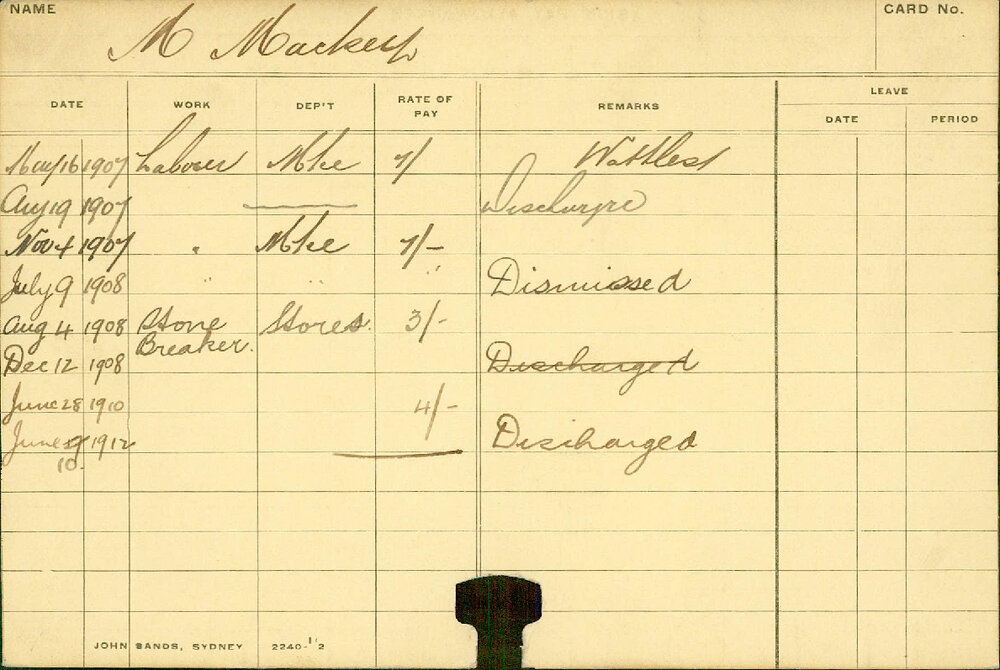 NAME M Mackey CARD No.
DATE WORK DEP'T RATE OF PAY REMARKS LEAVE
DATE PERIOD
May 16 1907 Labourer Mtce 7/
Aug 19 1907 Discharge
Nov 4 1907 " Mtce 7/-
July 9 1908 " " " Dismissed
Aug 4 1908 Stone Stores. 3/-
Breaker.
Dec 12 1908 Discharged
June 28 1910 4/-
June 1912 Discharged
10
JOHN SANDS, SYDNEY 2240-1"2